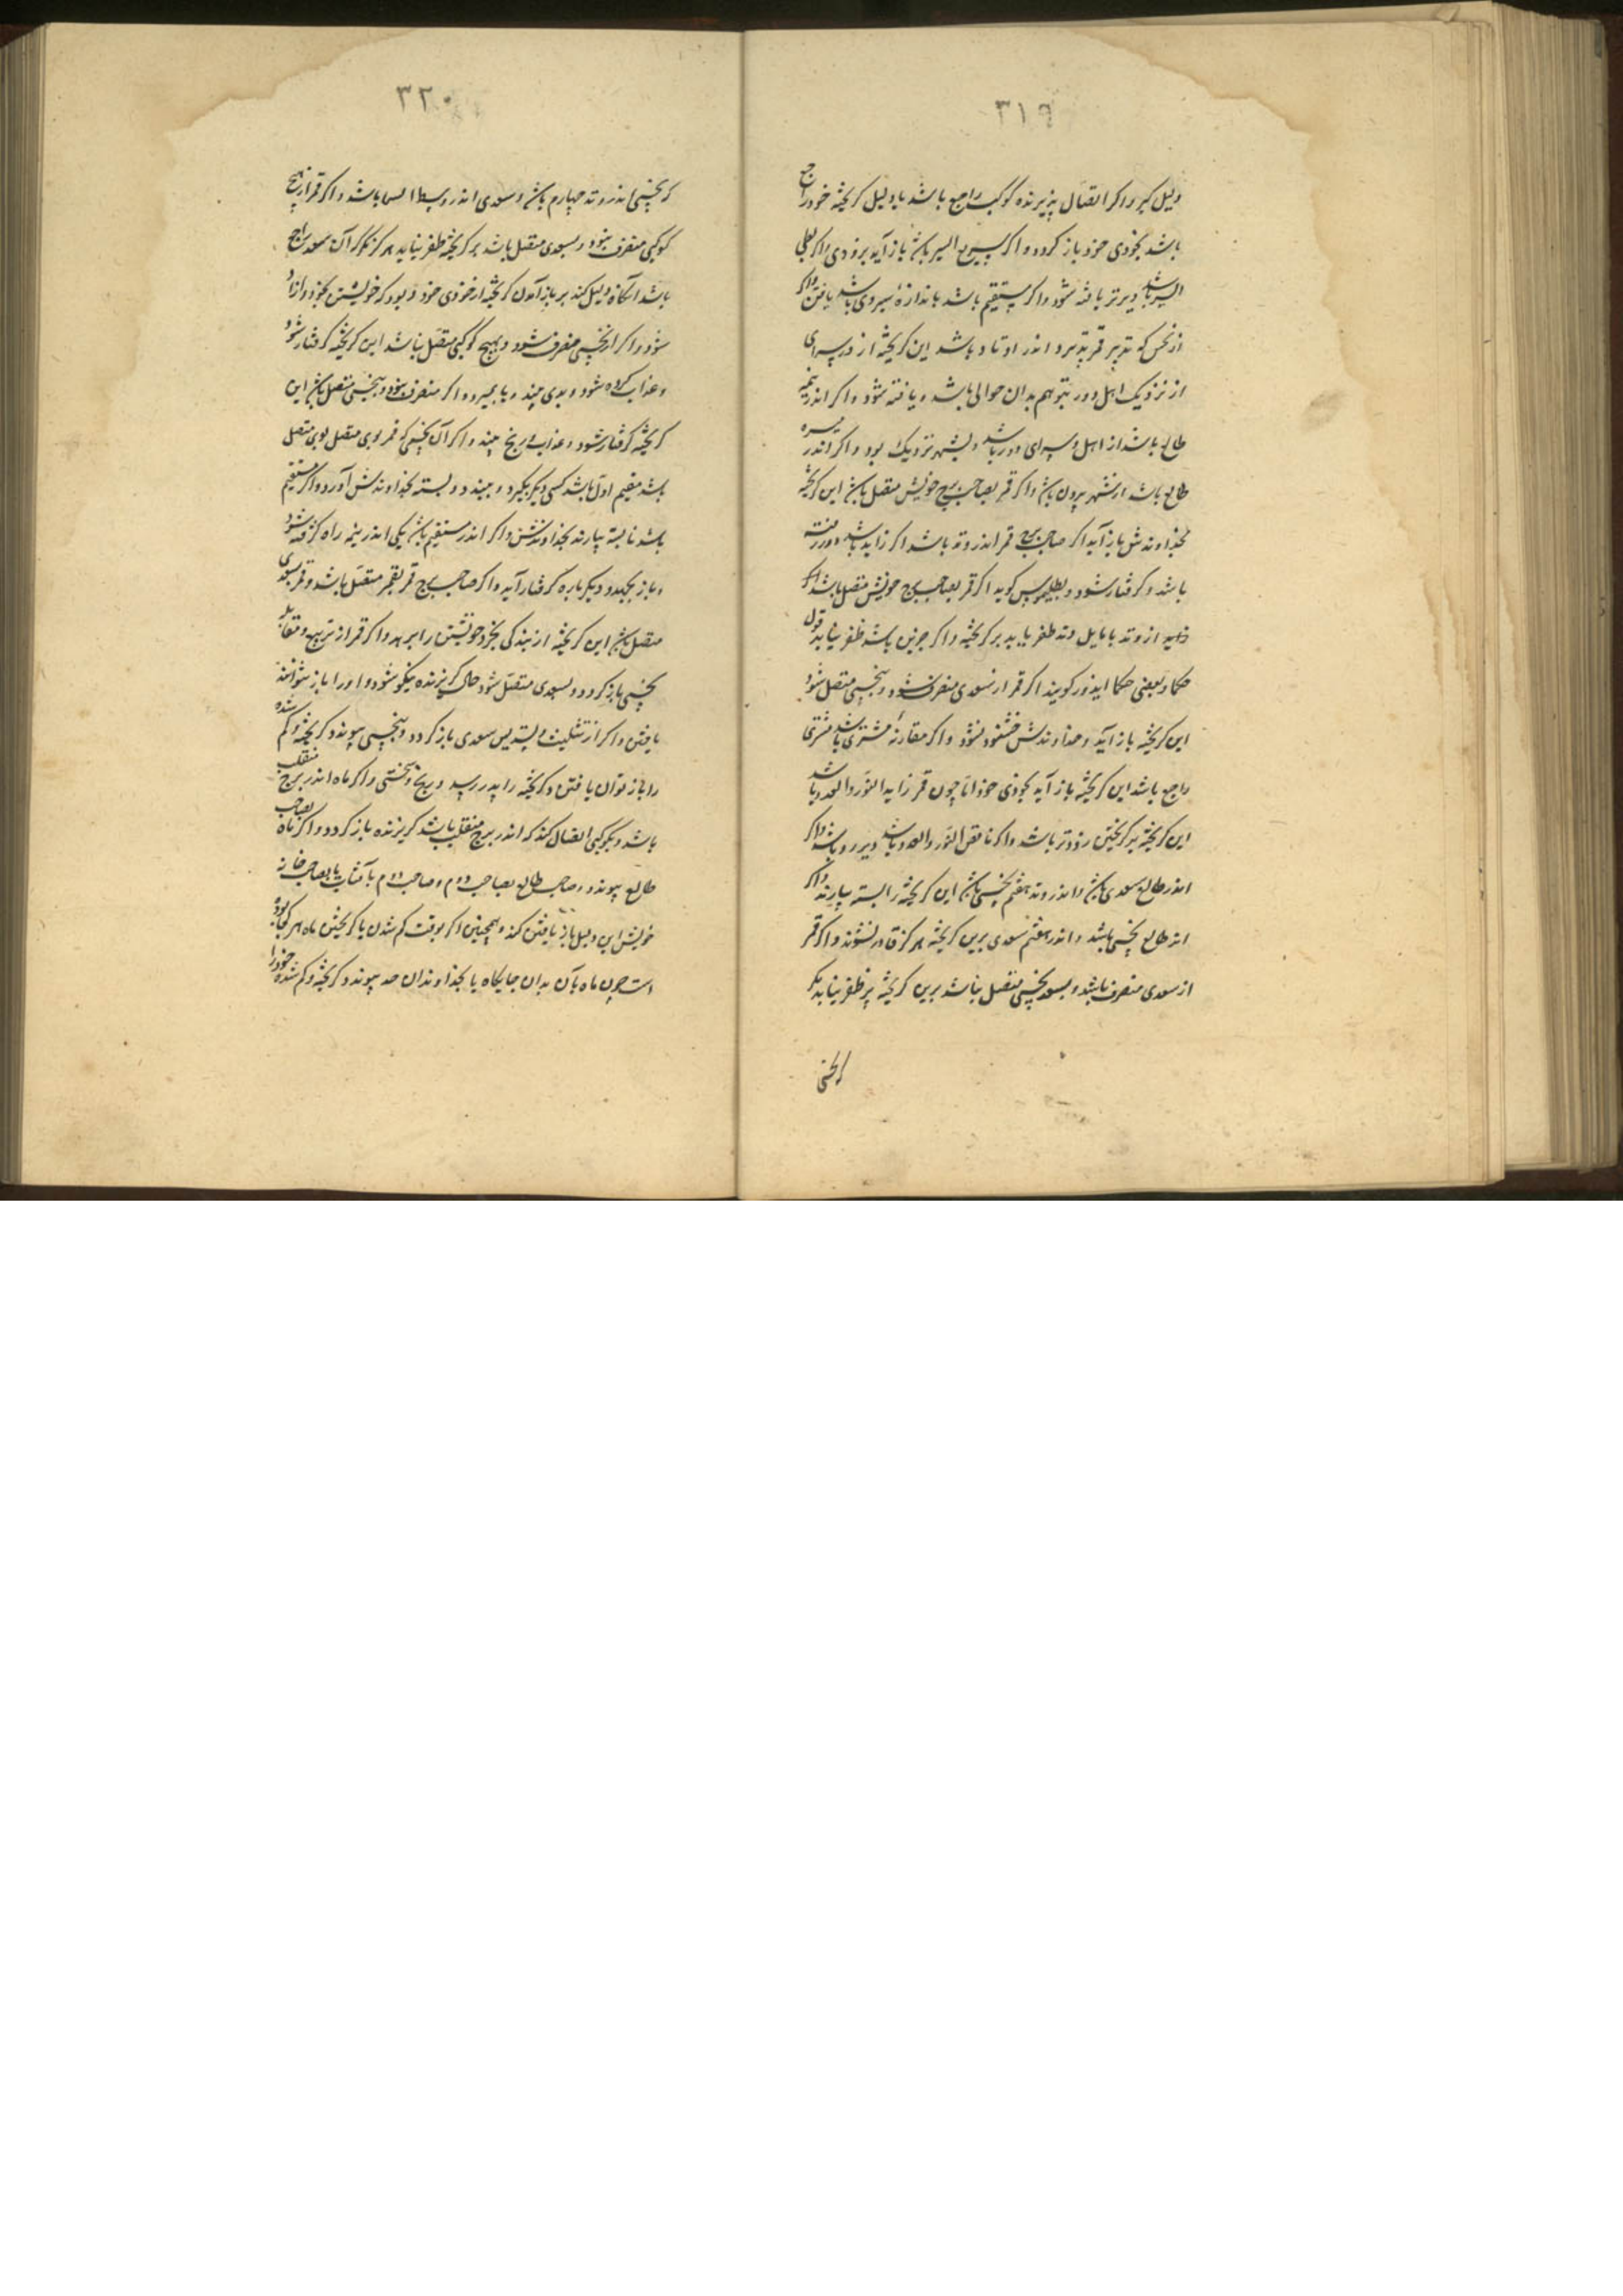 ۳۱۹
دلیل کیر و اکر اتصال پذیرنده کوکب راجع باشد یا دلیل کریخته خود راجع
باشد بخودی خود باز کردد و اکر سریع السیر باشد باز آید بزودی و اکر بطی
السیر باشد دیرتر یافته شود و اکر مستقیم باشد باندازهٔ سیر وی باشد یافتن و اکر
از نحس که تدبیر قمر پذیرد اندر اوتاد باشد این کریخته از در سرای
از نزدیک اهل دور نبود هم بدان حوالی باشد و یافته شود و اکر اندر نیمه
طالع باشد از اهل و سرای دور باشد و بشهر نزدیک بود و اکر اندر
طالع باشد از شهر بیرون باشد و اکر قمر بصاحب برج خویش متصل باشد این کریخته
بخداوندش باز آید اکر صاحب برج قمر اندر وتد باشد اکر زاید باشد و در
باشد و کرفتار شود و بطلیموس کوید اکر قمر بصاحب برج خویش متصل باشد و اکر
زاید از وتد یا مایل وتد ظفر یابد بر کریخته و اکر جز این باشد ظفر نیابد قول
حکما و بعضی حکما ایدون کویند اکر قمر از سعدی منصرف شود و بنحسی متصل شود
این کریخته باز آید و خداوندش خشنود نشود و اکر مقارنهٔ مشتری باشد و مشتری
راجع باشد این کریخته باز آید بخودی خود اما چون قمر زاید النور و العدد باشد
این کریخته بر کریختن زودتر باشد و اکر ناقص النور و العدد باشد دیررو باشد و اکر
اندر طالع سعدی باشد و اندر وتد هفتم نحسی باشد این کریخته را بسته بیارند و اکر
اندر طالع نحسی باشد و اندر هفتم سعدی برین کریخته هرکز قادر نشوند و اکر قمر
از سعدی منصرف باشد و بسعد و نحسی متصل نباشد برین کریخته نیز ظفر نیابد مکر
۳۲۰
که نحسی اندر وتد چهارم باشد و سعدی اندر وسط السما باشد و اکر قمر از هیچ
کوکبی منصرف نبود و بسعدی متصل باشد بر کریخته ظفر نیابد هرکز مکر آن سعد راجع
باشد آنکاه دلیل کند بر باز آمدن کریخته از خودی خود و بود که خویشتن بخرد و آزاد
شود و اکر از نحسی منصرف شود و بهیچ کوکبی متصل نباشد این کریخته کرفتار شود
و عذاب کرده شود و بدی بیند و یا بمیرد و اکر منصرف بود و بنحسی متصل باشد این
کریخته کرفتار شود و عذاب و رنج بیند و اکر آن نحسی که قمر بوی متصل بود متصل
باشد مقیم اول باشد کسی دیکر بکیرد و ببندد و بسته بخداوندش آورد و اکر مستقیم
باشد نابسته بیارند بخداوندش و اکر اندر مستقیم باشد یکی اندر نیمه راه کرفته شود
و باز بجهد و دیکر باره کرفتار آید و اکر صاحب برج قمر بقمر متصل باشد و قمر بسعدی
متصل باشد این کریخته از بندکی بخرد خویشتن را برهد و اکر قمر از تربیع و مقابله
نحسی باز کردد و بسعدی متصل شود حال کریزنده نیکو شود و او را باز نتوانند
یافتن و اکر از تثلیث و تسدیس سعدی باز کردد و بنحسی پیوندد کریخته و کم شده
را باز توان یافتن و کریخته را بد رسد و رنج و سختی و اکر ماه اندر برج منقلب
باشد و بکوکبی اتصال کند که اندر برج منقلب باشد کریزنده باز کردد و اکر ماه بصاحب
طالع پیوندد و صاحب طالع بصاحب دوم و صاحب دوم بآفتاب یا بصاحب خانه
خویش این دلیل باز یافتن کند و همچنین اکر بوقت کم شدن یا کریختن ماه هر کجا بود
است چون ماه بآن بدان جایکاه یا بخداوندان حد پیوندد کریخته و کم شده خود را